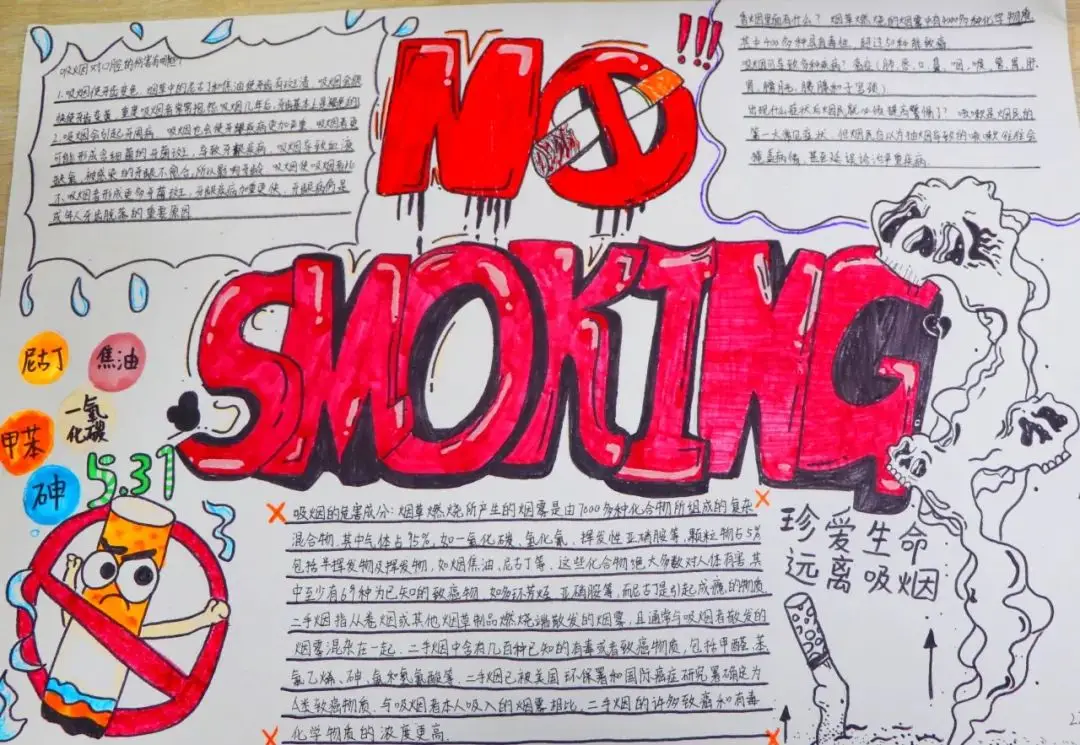 吸烟对口腔的伤害有哪些?
1.吸烟使牙齿变色,烟草中的尼古丁和焦油使牙齿有斑渍,吸烟会很
快使牙齿变黄,重度吸烟者常常抱怨吸烟几年后,牙齿基本上是褐色的
2.吸烟会引起牙周病 吸烟也会使牙龈疾病更加严重,吸烟者更
可能形成含细菌的牙菌斑,导致牙龈疾病,吸烟导致血液
缺氧,被感染的牙龈不愈合,所以影响牙龄 吸烟使吸烟者比
不吸烟者形成更多牙菌斑,牙龈疾病加重更快,牙龈病仍是
成年人牙齿脱落的重要原因
NO
!!!
香烟里面有什么?烟草燃烧的烟雾中有4000多种化学物质
其中400多种具有毒性,超过50种能致癌
吸烟可导致多种疾病?癌症(肺、唇、口、鼻、咽、喉、食、胃、肝
肾、膀胱、胰腺和子宫颈)
出现什么症状后烟民就必须提高警惕了? 咳嗽是烟民的
第一大常见症状,但烟民自以为抽烟导致的咳嗽,往往会
掩盖病情,甚至延误诊治严重疾病.
SMOKING
尼古丁
焦油
一氧
化碳
甲苯
砷
5.31
吸烟的危害成分:烟草燃烧所产生的烟雾是由7000多种化合物所组成的复杂
混合物,其中气体占95%,如一氧化碳、氢化氰、挥发性亚硝胺等,颗粒物占5%
包括半挥发物及挥发物,如烟焦油、尼古丁等,这些化合物绝大多数对人体有害,其
中至少有69种为已知的致癌物,如多环芳烃、亚硝胺等,而尼古丁是引起成瘾的物质
二手烟指从卷烟或其他烟草制品燃烧端散发的烟雾,且通常与吸烟者散发的
烟雾混杂在一起,二手烟中含有几百种已知的有毒或者致癌物质,包括甲醛、苯、
氯乙烯、砷、氨和氢氰酸等,二手烟已被美国环保署和国际癌症研究署确定为
A类致癌物质,与吸烟者本人吸入的烟雾相比,二手烟的许多致癌和有毒
化学物质的浓度更高.
珍爱生命
远离吸烟